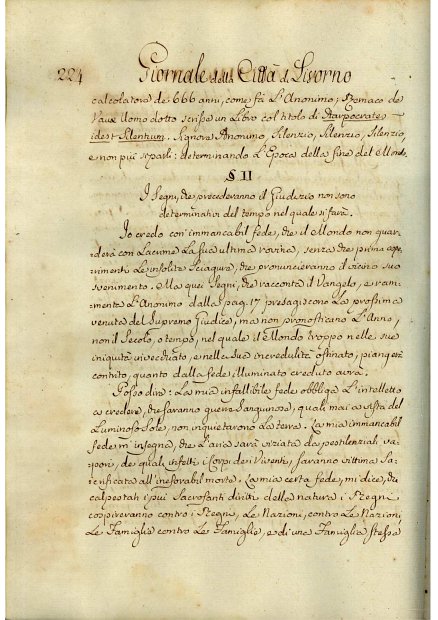 224 Giornale della Città di Livorno
calcolatore de 666 anni, come fà L'Anonimo;
Vaux Uomo dotto scrisse un Libro col titolo di Harpocrates
idest Silentium. Signore Anonimo, Silenzio, Silenzio, Silenzio,
e non più : determinando L'Epoca della fine del Mondo.
§ II
I Segni, che precederanno il Giudizio non sono
determinativi del tempo nel quale si farà.
Io credo con immancabil fede, che il Mondo non guar-
derà con Lacrime La sua ultima rovina, senza che prima
rimenti Le insolite Sciagure, che pronunzieranno il vicino suo
svenimento. Ma quei Segni, che racconta il Vangelo,
mente L'Anonimo dalla pag. 17 presagiscono La prossima
venuta del Supremo Giudice, ma non pronosticano L'Anno,
non il Secolo, o tempo, nel quale il Mondo troppo nelle sue
iniquità invecchiato, e nelle Sue incredulità ostinato, piangerà
contrito, quanto dalla fede illuminato creduto avrà.
Posso dire: La mia infallibile fede obbliga L'intelletto
a credere, che saranno guerre Sanguinose, quali mai a vista del
Luminoso Sole, non inquietarono La terra. La mia immancabil
fede m'insegna, che L'aria sarà viziata da pestilenziali va-
pori, de quali infetti i Corpi de Viventi, saranno vittima Sa-
crificata all'inesorabil morte. La mia certa fede, mi dice, che
calpestati i più Sacrosanti diritti della natura i Regni
cospireranno contro i Regni, Le Nazioni, contro Le Nazioni,
Le Famiglie contro Le Famiglie, e di una Famiglia stessa